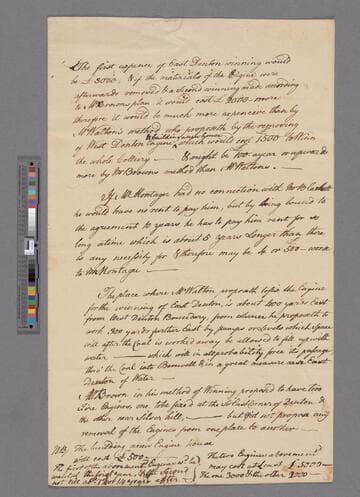 The first expence of East Denton winning would
be £3000, & if the materials of the Engine were
afterwards removed & a second winning made according
to Mr Browns plan it would cost £2000 more
therefore it would be much more expencive than by
Mr Waltons method who proposeth by the removing
& building a new house
of West Denton Engine, which would cost 1500 to Win
the whole Colliery — & might be year or upwards
more by Mr Browns method than Mr Waltons —
If Mr Montague had no connection with Mr
he would have no rent to pay him, but by being bound to
the agreement 10 years he has to pay him rent for so
long a time which is about 5 years Longer than there
is any necessity for & therefore may be 4 or 500 — worse
to Mr Montague —
The place where Mr Walton proposeth to fix the Engine
for the winning of East Denton, is about 400 yards East
from West Denton Boundary, from whence he proposeth to
work 300 yards further East by pumps or Levels which space
will after the Coal is worked away be allowed to fill up with
water — which will in all probability force its passage
thro' the Coal into Benwell & in a great measure ease East
Denton of Water —
Mr Brown in his method of Winning proposed to have two
Fire Engines one to be fixed at the So East Corner of Denton &
the other near Silver hill, — but did not propose any
removal of the Engines from one place to another —
NB. The building a new Engine house
will cost £500 —
The first of the above next Engines will
& the Second
not till abt 14 years after
The two Engines above ment
may cost at least £5000 —
the one 3000 & the other 2000